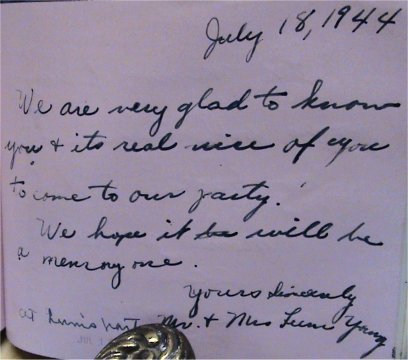 July 18, 1944
We are very glad to know
you & its real nice of you
to come to our party.
We hope it will be
a memory one.
Yours Sincerely
at Lum's part Mr. & Mrs Lum Young